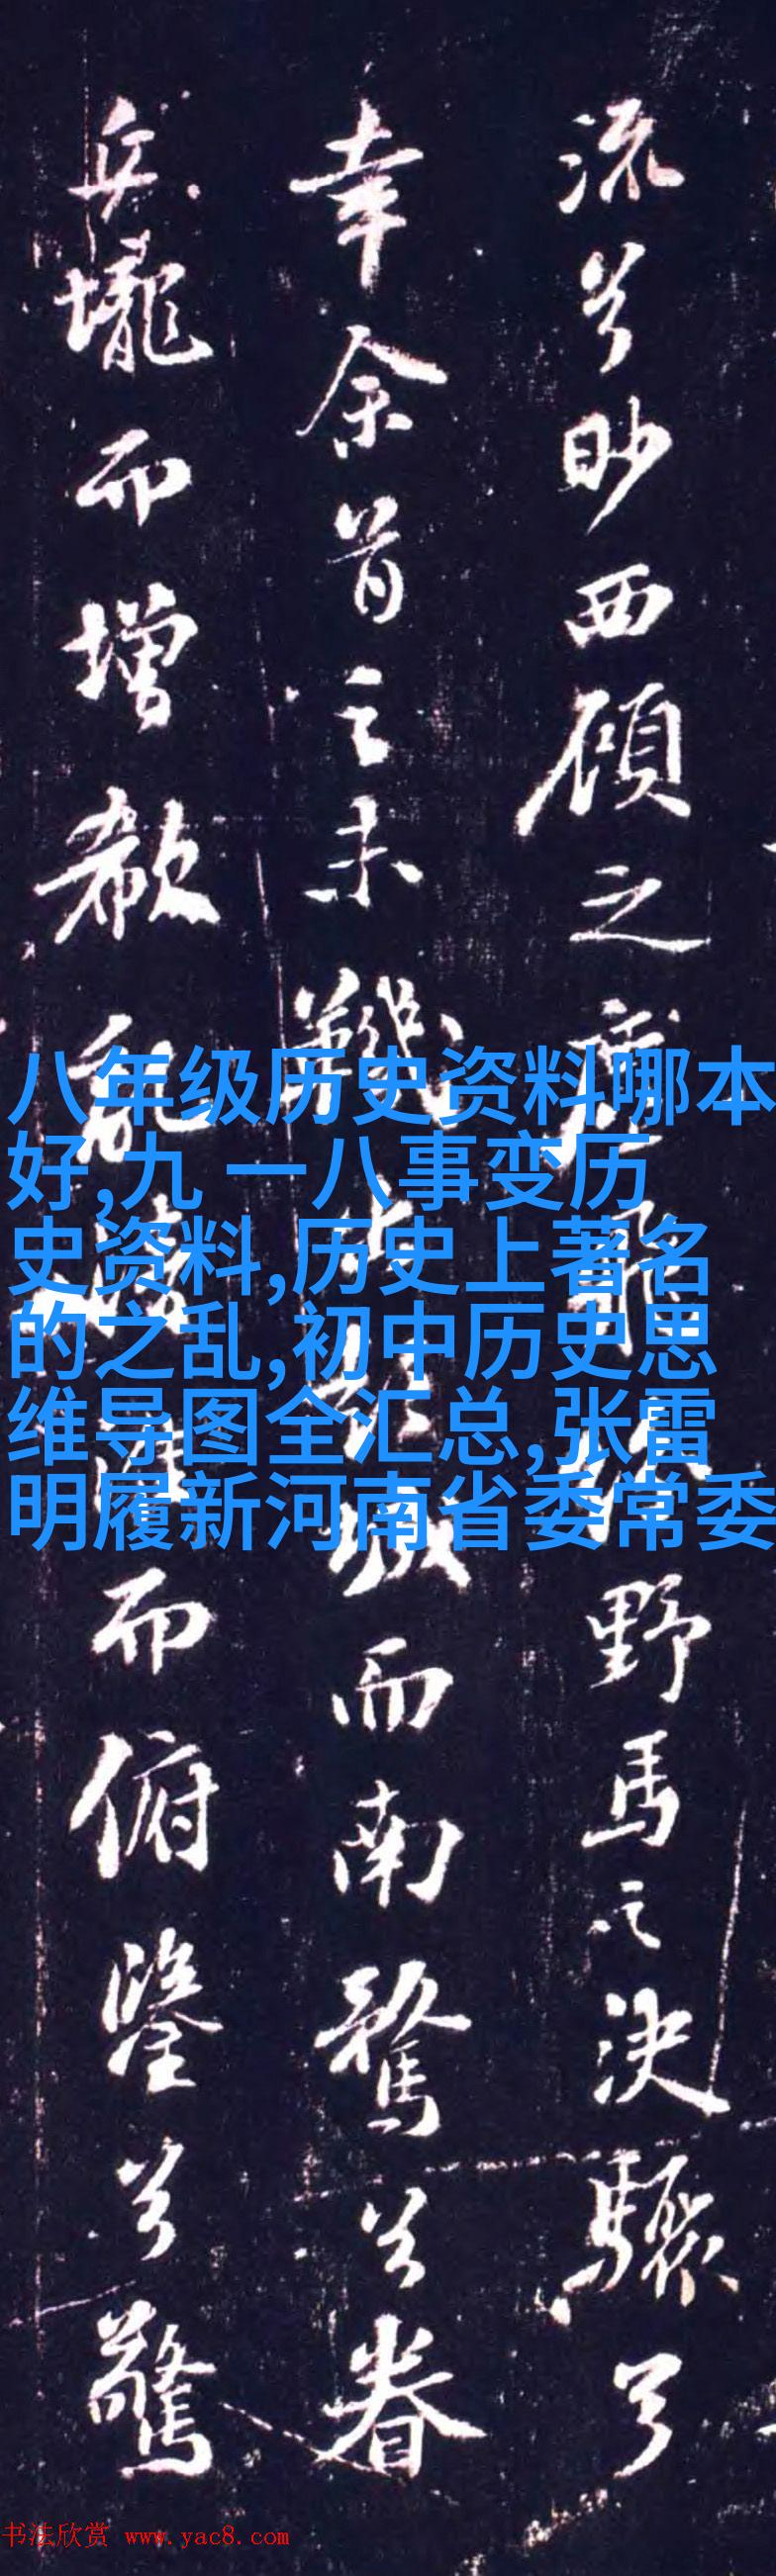 流兮眇西顧之
野馬之決驟兮
幸余首之未鞿
城而南騖兮眷
丘壠而增欷亂
而俯鑒兮驚
八年级历史资料哪本
好,九 一八事变历
史资料,历史上著名
的之乱,初中历史思
维导图全汇总,张雷
明履新河南省委常委
书法欣赏 www.yac8.com